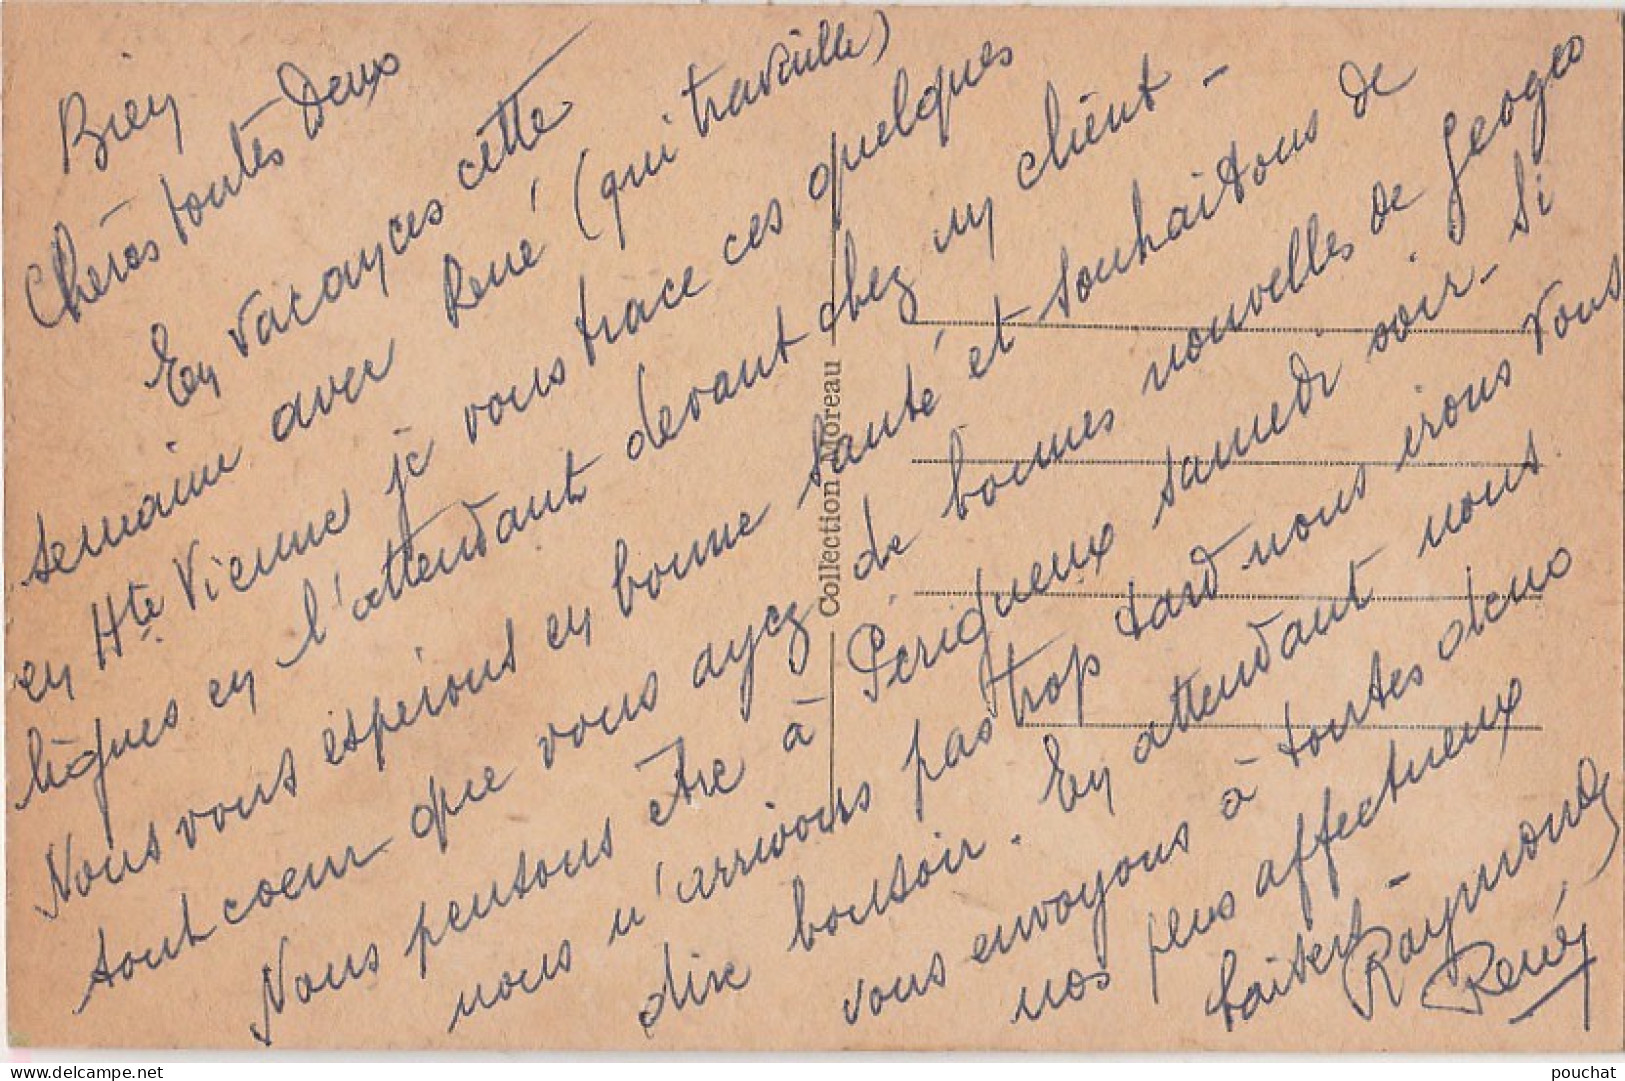 Bien
Chères toutes Deux
En vacances cette
semaine avec René (qui travaille)
en Hte Vienne je vous trace ces quelques
lignes en l'attendant devant chez un client -
Nous vous espérons en bonne santé et souhaitons de
tout coeur que vous ayez de bonnes nouvelles de Georges
Nous pensons être à Périgueux samedi soir - Si
nous n'arrivons pas trop tard nous irons vous
dire bonsoir. En attendant nous
vous envoyons à toutes deux
nos plus affectueux
baisers -
Raymonde
René
Collection Moreau
delcampe.net
pouchat